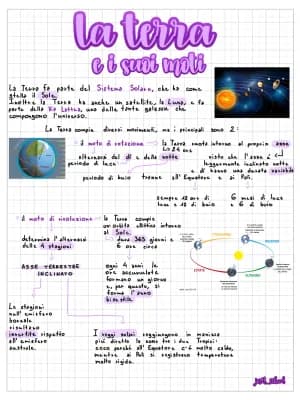 la terra
e i suoi moti
La Terra fa parte del Sistema Solare, che ha come
stella il Sole.
Inoltre la Terra ha anche un satellite, la Luna, e fa
parte della Via Lattea, una delle tante galassie che
compongono l'universo.
La Terra compie diversi movimenti, ma i principali sono 2:
il moto di rotazione
la Terra ruota intorno al proprio asse
24 ore
alternarsi del dì e della notte
periodo di luce
visto che l'asse è
leggermente inclinato notte
e dì hanno una durata variabile
periodo di buio
tranne all'Equatore e ai Poli.
sempre 12 ore di
luce e 12 di buio
6 mesi di luce
e 6 di buio
il moto di rivoluzione
la Terra compie
un'orbita ellittica intorno
al Sole.
dura 365 giorni e
6 ore circa
determina l'alternarsi
delle 4 stagioni
ASSE TERRESTRE
INCLINATO
ogni 4 anni le
ore accumulate
formano un giorno
e, per questo, si
forma l'anno
bisestile
PRIMAVERA
INVERNO
ESTATE
AUTUNNO
Le stagioni
nell'emisfero
boreale
risultano
invertite rispetto
all'emisfero
australe.
I raggi solari raggiungono in maniera
più diretta le zone tra i due Tropici:
ecco perché all'Equatore c'è molto caldo,
mentre ai Poli si registrano temperature
molto rigide.